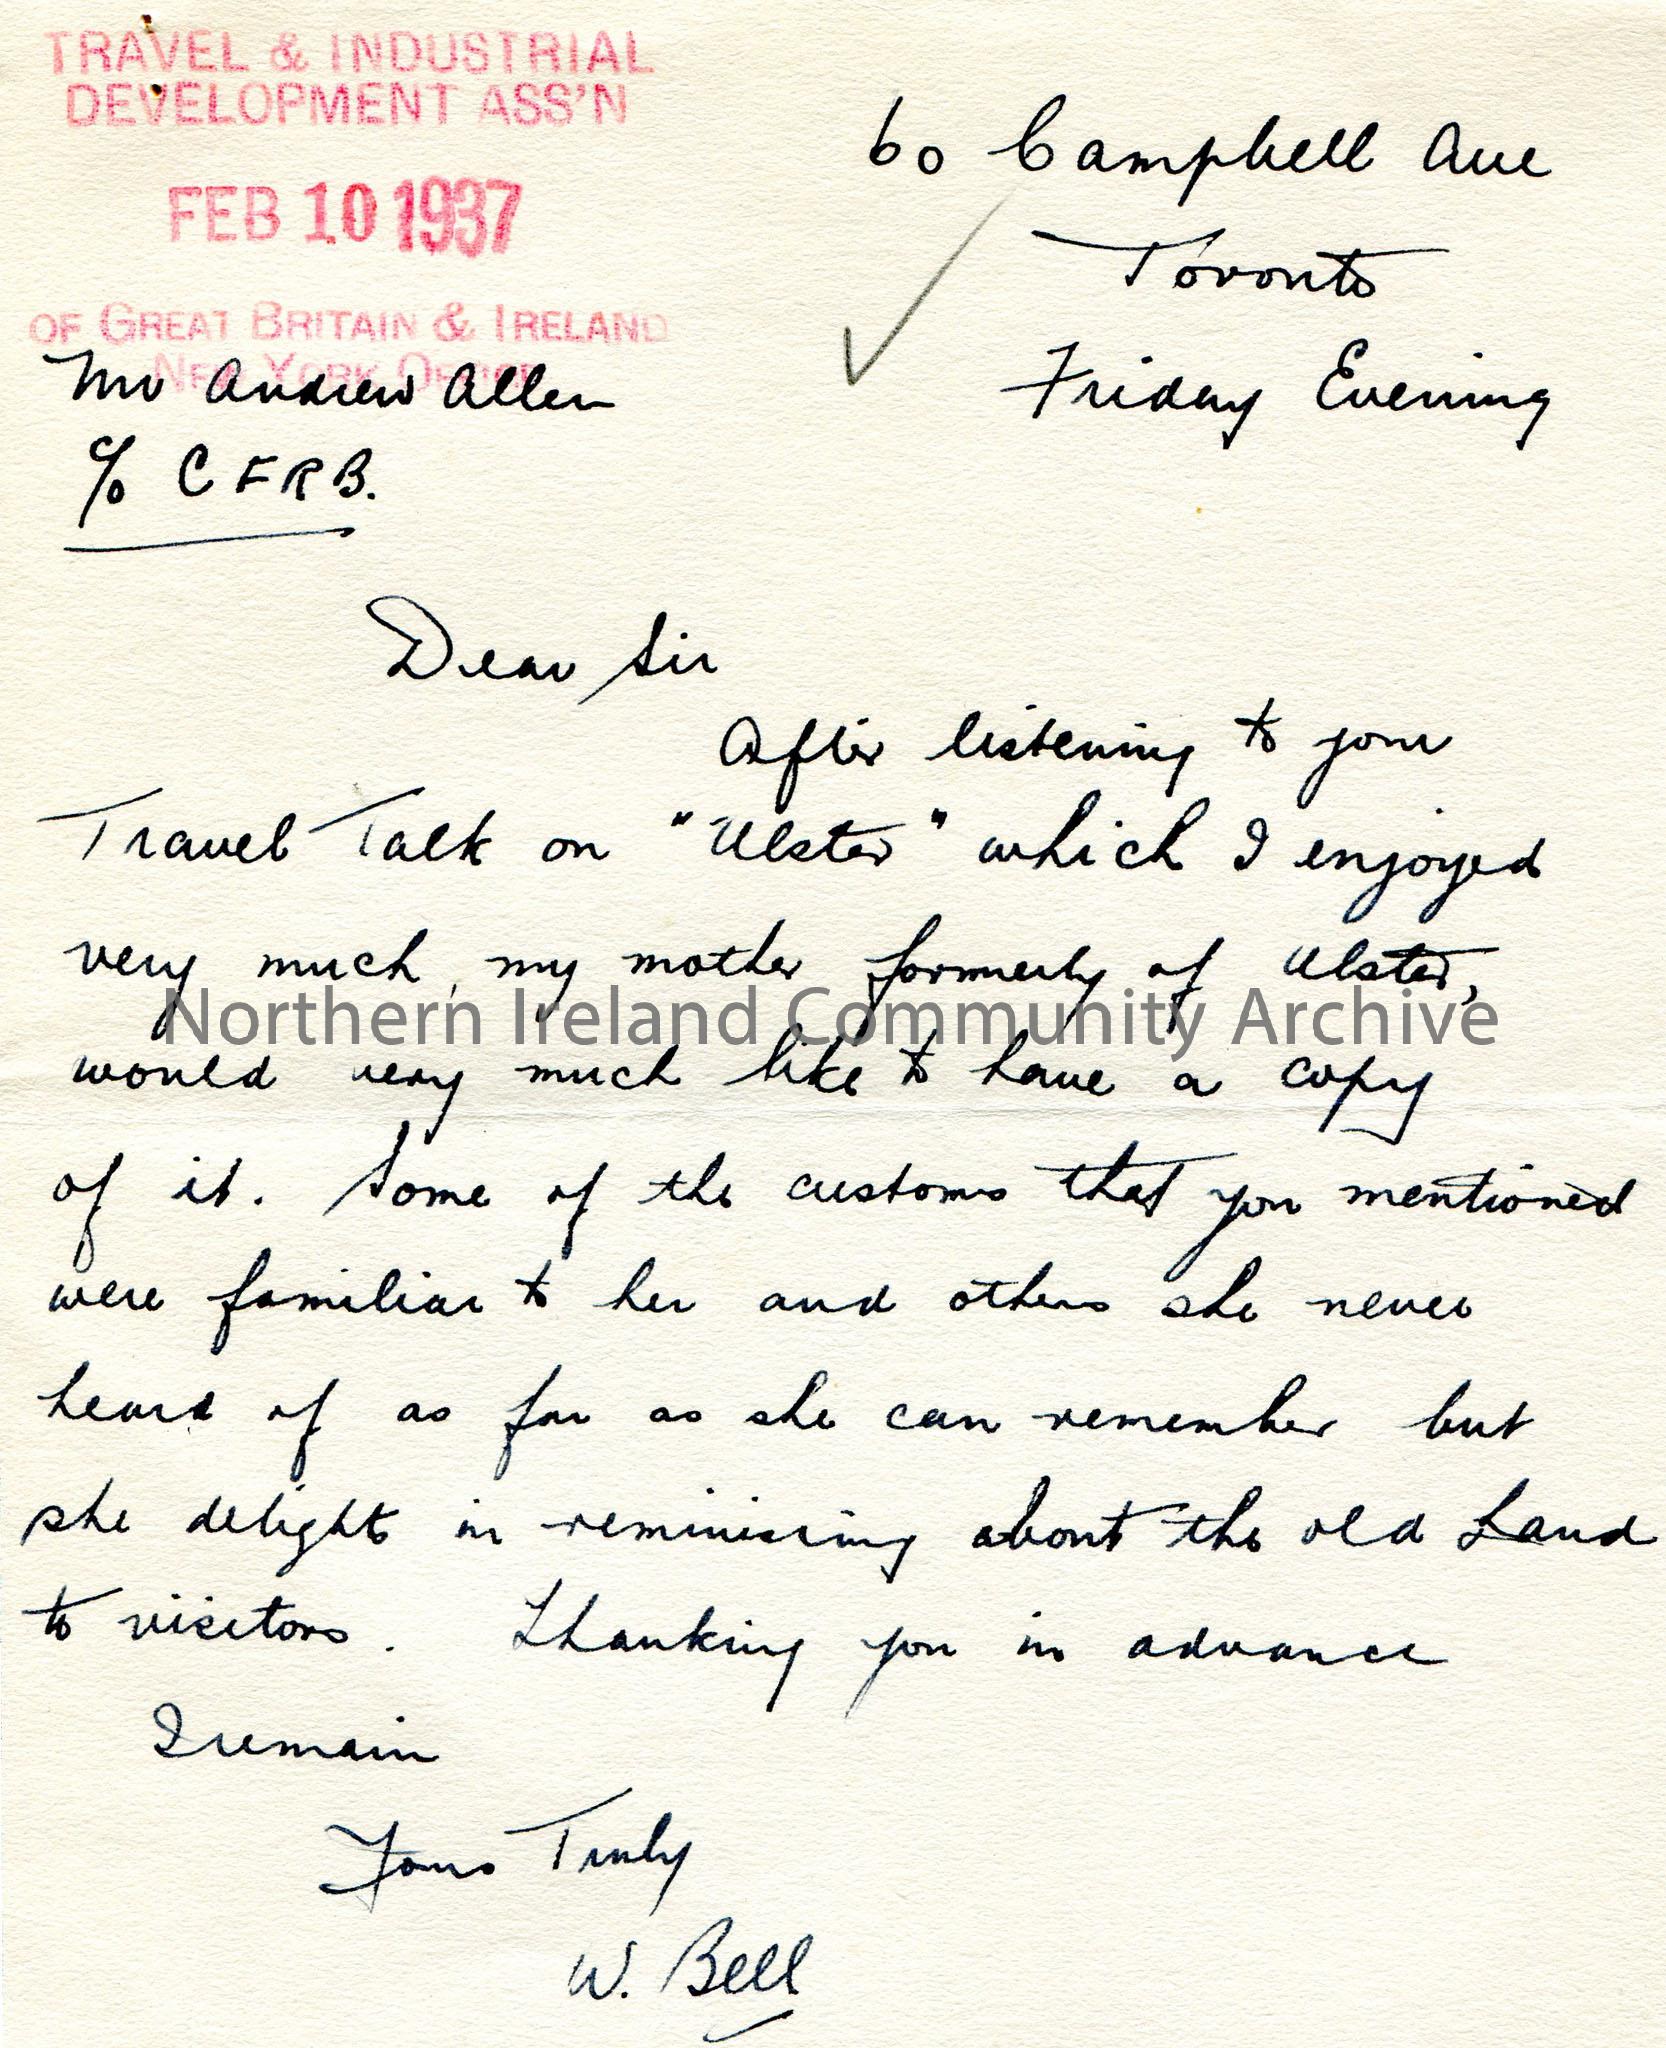 TRAVEL & INDUSTRIAL
DEVELOPMENT ASS'N
FEB 10 1937
OF GREAT BRITAIN & IRELAND
NEW YORK OFFICE
60 Campbell Ave
Toronto
Friday Evening
Mr Andrew Allen
c/o C F R B.
Dear Sir
After listening to your
Travel Talk on "Ulster" which I enjoyed
very much, my mother formerly of Ulster,
Northern Ireland Community Archive
would very much like to have a copy
of it. Some of the customs that you mentioned
were familiar to her and others she never
heard of as far as she can remember but
she delights in reminising about the old Land
to visitors. Thanking you in advance
I remain
Yours Truly
W. Bell